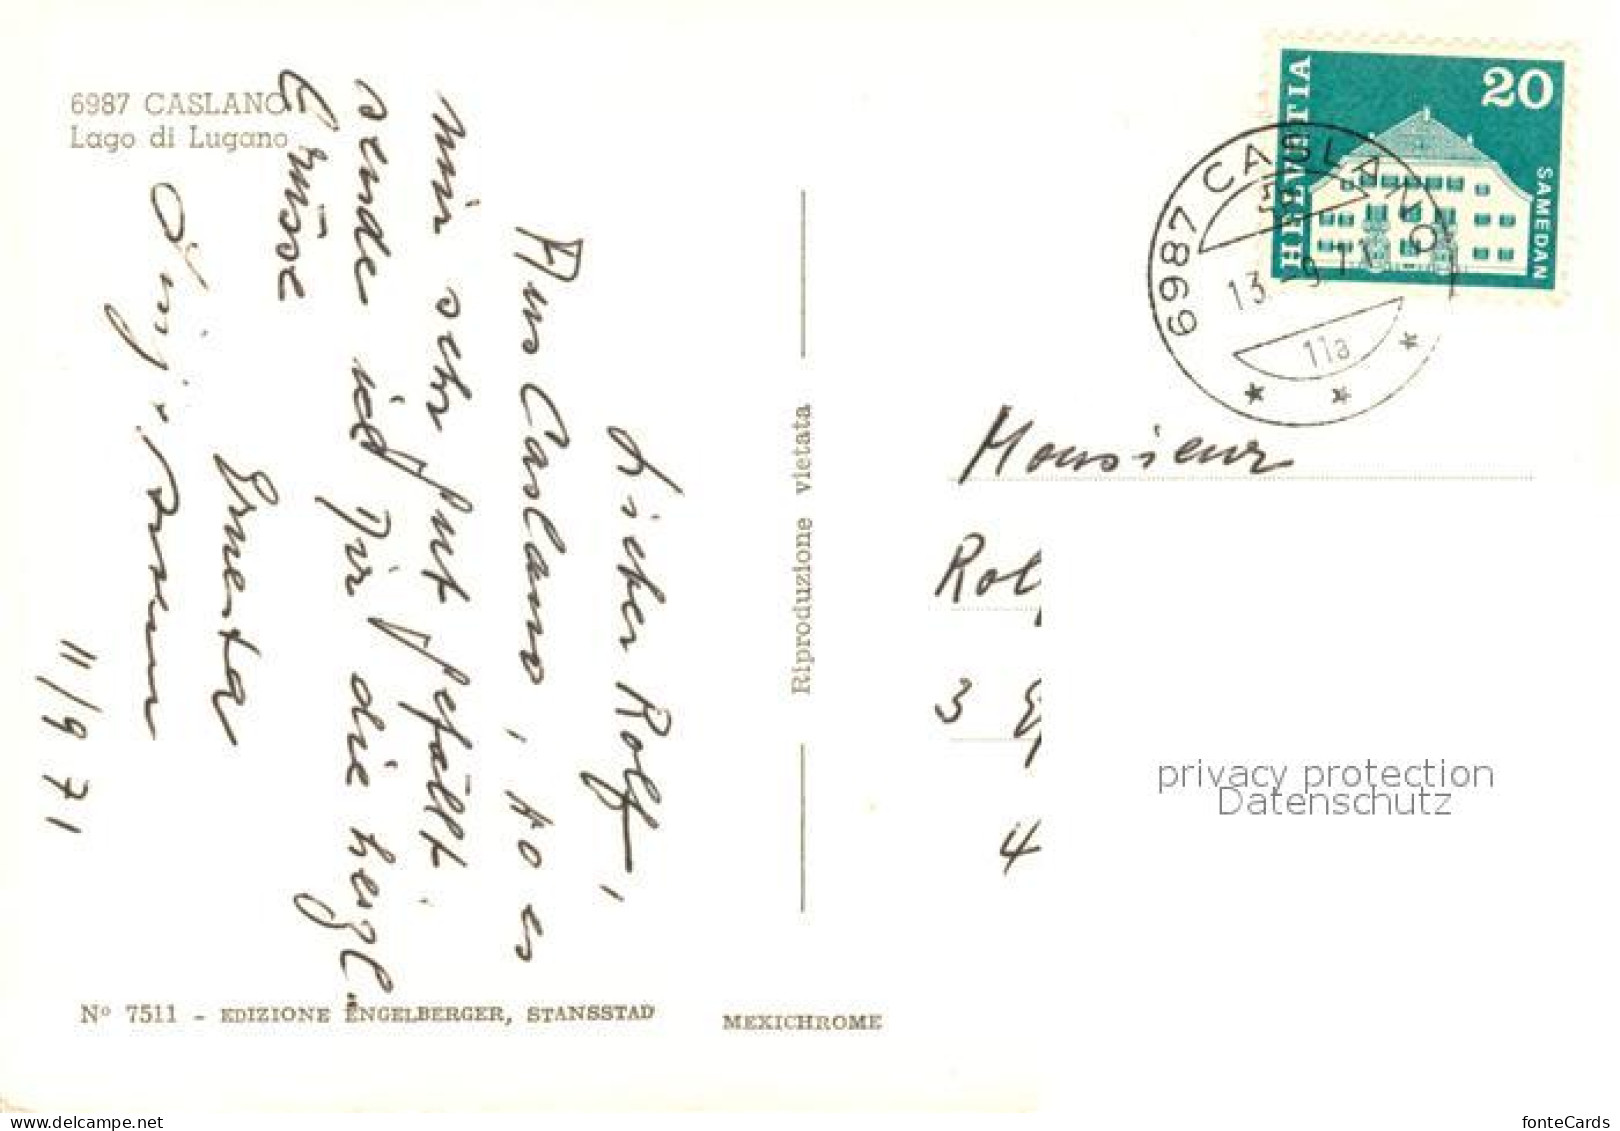 6987 CASLANO
Lago di Lugano
Lieber Rolf,
Aus Caslano, wo es
mir sehr gut gefällt.
sende ich Dir die herzl.
Grüsse
Ernesta
11/9 71
Riproduzione vietata
Nº 7511 - EDIZIONE ENGELBERGER, STANSSTAD
MEXICHROME
HELVETIA
20
SAMEDAN
6987 CASLANO
13
11a
Monsieur
Rol
3
4
privacy protection
Datenschutz
www.delcampe.net
fonteCards